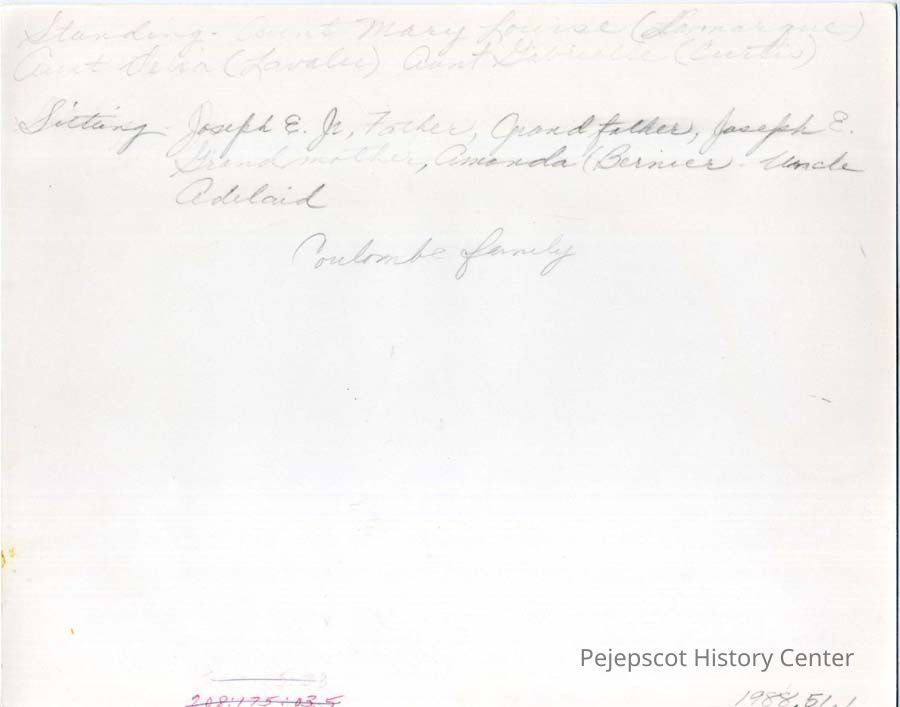 Standing - Aunt Mary Louise (Lamarque)
Aunt (Lavalee) Aunt Gabrielle (Curtis)
Sitting - Joseph E. Jr, Father, Grandfather, Joseph E.
Grandmother, Amanda (Bernier - Uncle
Adelaid
Coulombe family
Pejepscot History Center
1988.51.1